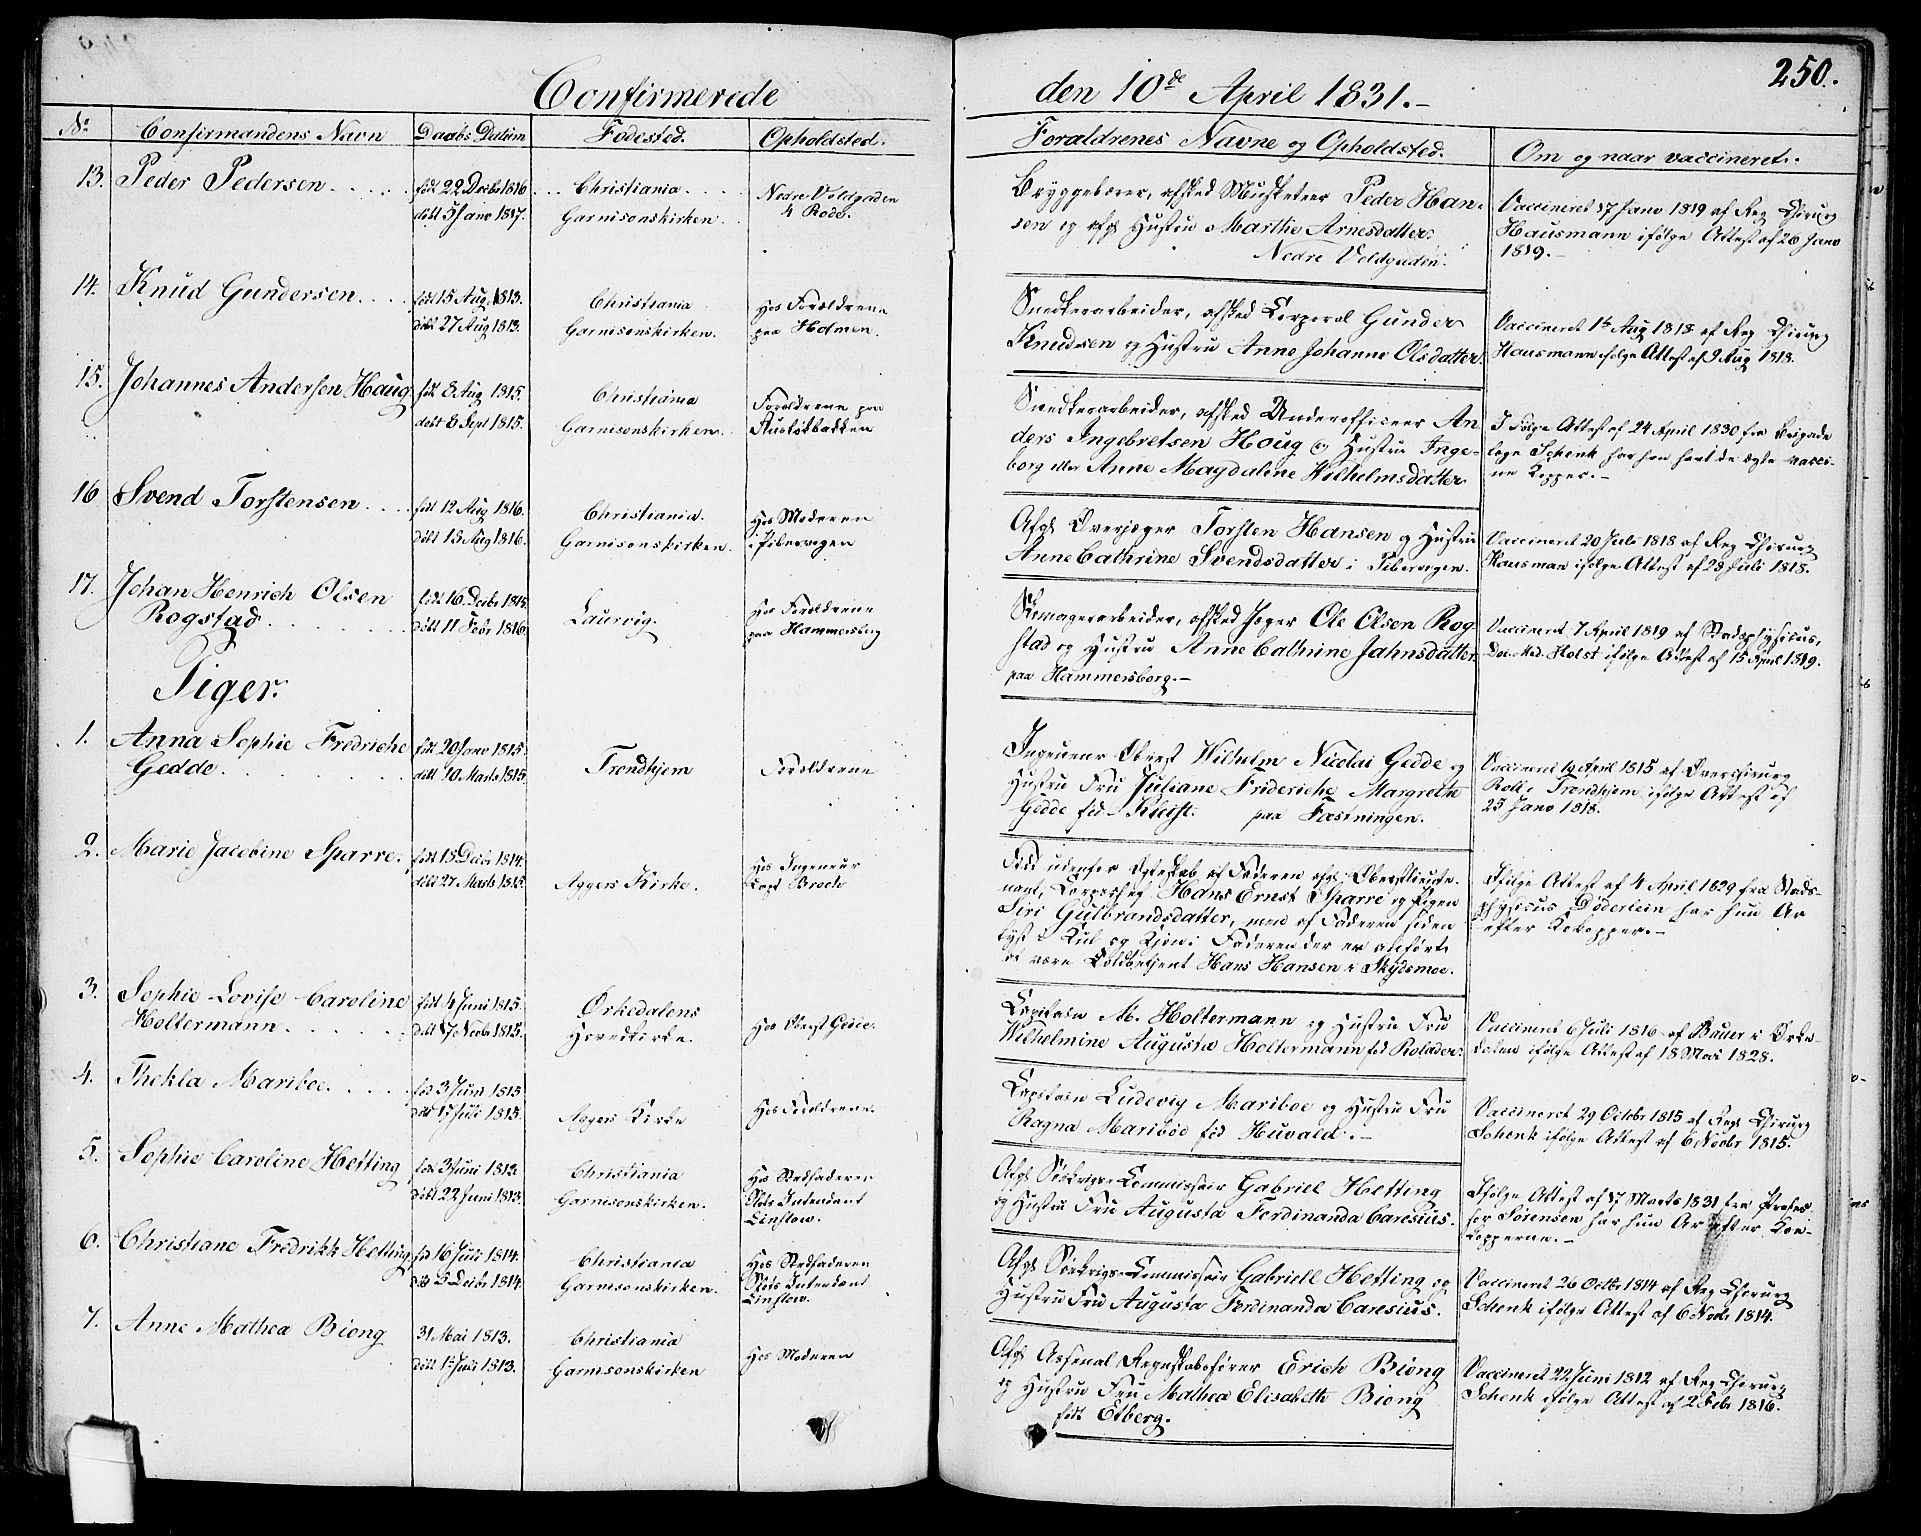 Confirmerede
den 10de April 1831.-
250.
No Confirmandens Navn Daabs Datum Fødested. Opholdsted.
Forældrenes Navne og Opholdsted. Om og naar vaccineret.
13. Peder Pedersen
født 22 Decbr 1816
døbt 5 Janv 1817.
Christiania
Garnisonskirken.
Nedre Voldgaden
4 Rode.
Bryggebærer, afsked Musketeer Peder Han-
sen og afg. Hustru Marthe Arnesdatter.
Nedre Voldgaden.
Vaccineret 17 Janv 1819 af Reg Chirurg
Hausmann ifølge Attest af 26 Janv
1819.-
14. Knud Gundersen
født 15 Aug 1813.
døbt 27 Aug 1813.
Christiania
Garnisonskirken.
Hos Forældrene
paa Holmen.
Snedkerarbeider, afsked Corporal Gunder
Knudsen og Hustru Anne Johanne Olsdatter.
Vaccineret 1te Aug 1818 af Reg Chirurg
Hausmann ifølge Attest af 9 Aug 1818.
15. Johannes Andersen Haug
født 8 Aug 1815.
døbt 8 Sept 1815.
Christiania
Garnisonskirken.
Forældrene paa
Ruseløkbakken
Snedkerarbeider, afsked Underofficeer An
ders Ingebretsen Houg og Hustru Inge-
borg eller Anne Magdaline Wilhelmsdatter
I Følge Attest af 24 April 1830 fra Brigade
læge Schenk har han havt de ægte vacci-
ne Kopper.-
16 Svend Torstensen
født 12 Aug 1816.
døbt 13 Aug 1816.
Christiania.
Garnisonskirken.
Hos Moderen
i Pibervigen
Afg. Overjæger Torsten Hansen og Hustru
Anne Cathrine Svendsdatter i Pibervigen.
Vaccineret 20 Juli 1818 af Reg Chirurg
Hausman ifølge Attest af 28 Juli 1818.
17. Johan Henrich Olsen
Rogstad
født 16 Decbr 1815.
døbt 11 Febr 1816.
Laurvig.
Hos Forældrene
paa Hammersborg
Skomagerarbeider, afsked Jæger Ole Olsen Rog
stad og Hustru Anne Cathrine Jahnsdatter
paa Hammersborg.-
Vaccineret 7 April 1819 af Stadsphysicus,
Doc. Med. Holst ifølge Attest af 15 April 1819.
Piger.
1. Anna Sophie Fredriche
Gedde
født 20 Janv 1815.
døbt 10 Marts 1815.
Trondhjem
Forældrene
Ingenieur Oberst Wilhelm Nicolai Gedde og
Hustru Fru Juliane Frideriche Margrethe
Gedde fød Kleist. paa Fæstningen.
Vaccineret 19 April 1815 af Overchirurg
i Trondhjem ifølge Attest af
25 Janv 1818.
2. Marie Jacobine Sparre.
født 13 Decbr 1814.
døbt 27 Marts 1815.
Aggers Kirke.
Hos Ingenieur
Capt Broch
Født udenfor Ægteskab af Faderen afg. Oberstlieute-
nant, Corpschef Hans Ernst Sparre og Pigen
Siri Gulbrandsdatter, men af Faderen siden
lyst i Kul og Kjøn; Faderen der er anført
at være Toldbetjent Hans Hansen i Skydsmoe.
Ifølge Attest af 4 April 1829 fra Stads-
physicus Døderlein har hun Ar
efter Kokopper.-
3. Sophie Lovise Caroline
Holtermann
født 4 Juni 1815.
døbt 17 Novbr 1815.
Ørkedalens
Hovedkirke.
Hos Oberst Gedde.
Capitain M. Holtermann og Hustru Fru
Wilhelmine Augusta Holtermann fød
Vaccineret 6 Juli 1816 af Bauer i Ørke-
dalen ifølge Attest af 18 Mai 1828.
4. Thekla Mariboe.
fød 3 Juni 1815
døbt 17 Juli 1815.
Aggers Kirke
Hos Forældrene.
Capitain Ludevig Mariboe og Hustru Fru
Ragna Mariboe fød Huvald.-
Vaccineret 29 Octobr 1815 af Reg Chirurg
Schenk ifølge Attest af 6 Novbr 1815.
5. Sophie Caroline Hetting
fød 3 Juni 1812.
døbt 22 Juni 1812.
Christiania
Garnisonskirken.
Hos Stedfaderen
Slots Intendant
Linstow.
Afg. Søekrigs-Commissair Gabriell Hetting
og Hustru Fru Augusta Ferdinanda Caresius.
Ifølge Attest af 17 Marts 1831 fra Profes-
sor Sørensen har hun Ar efter Koe-
kopperne.-
6. Christiane Fredrikk Hetting
fød 16 Juli 1814.
døbt 5 Decbr 1814.
Christiania
Garnisonskirken.
Hos Stedfaderen
Slots Intendant
Linstow.
Afg. Søekrigs-Commissair Gabriell Hetting og
Hustru Fru Augusta Ferdinanda Caresius.
Vaccineret 26 Octbr 1814 af Reg Chirurg
Schenk ifølge Attest af 6 Novbr 1814.
7. Anne Mathea Biong
31 Mai 1813.
døbt 1 Juli 1813.
Christiania
Garnisonskirken
Hos Moderen
Afg. Arsenal Regnskabsfører Erich Biong
og Hustru Fru Mathea Elisabeth Biong
født Etberg.
Vaccineret 22 Juni 1812 af Reg Chirurg
Schenk ifølge Attest af 2 Febr 1816.